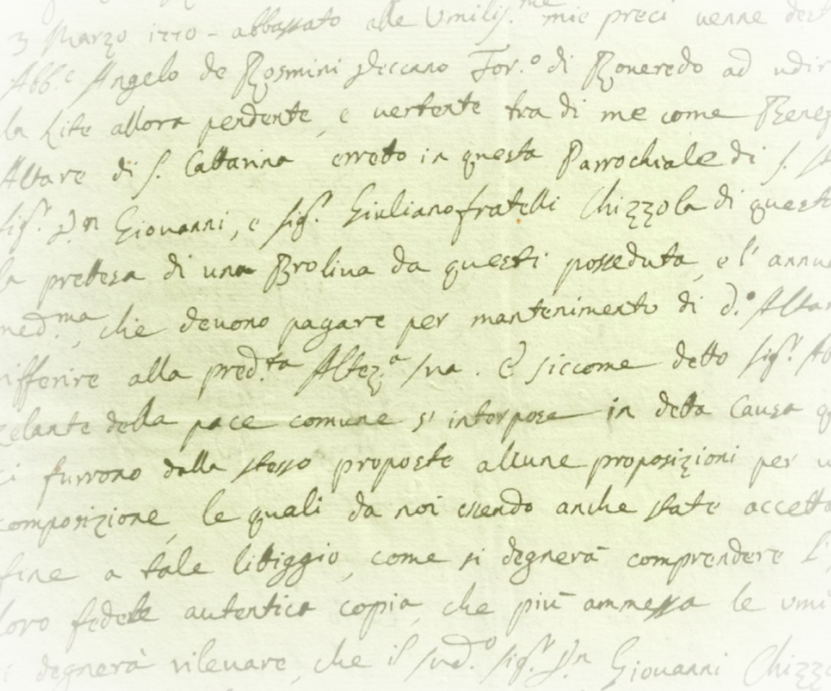 3 Marzo 1770 - abbassato alle Umilis.me mie preci venne
Abb.e Angelo de Rosmini Diccano For.o di Roveredo ad udir
la Lite allora pendente, e vertente tra di me come Benef
Altare di S. Cattarina erretto in questa Parrochiale di S.
Sig.r D.n Giovanni, e Sig.r Giuliano fratelli Chizzola di questo
la prettesa di una Brolliva da questi posseduta, e l' annu
med.ma, che devono pagare per mantenimento di d.o Altar
rifferire alla pred.ta Altez.a sua. E siccome detto Sig.r
zelante della pace comune s' interpose in detta Causa
ci furrono dallo stesso proposte alcune proposizioni per
composizione, le quali da noi essendo anche state accetta
fine a tale litiggio, come si degnerà comprendere
loro fedele autentica copia, che più ammessa le umi
degnerà rilevare, che il sud.o Sig.r D.n Giovanni Chizzo